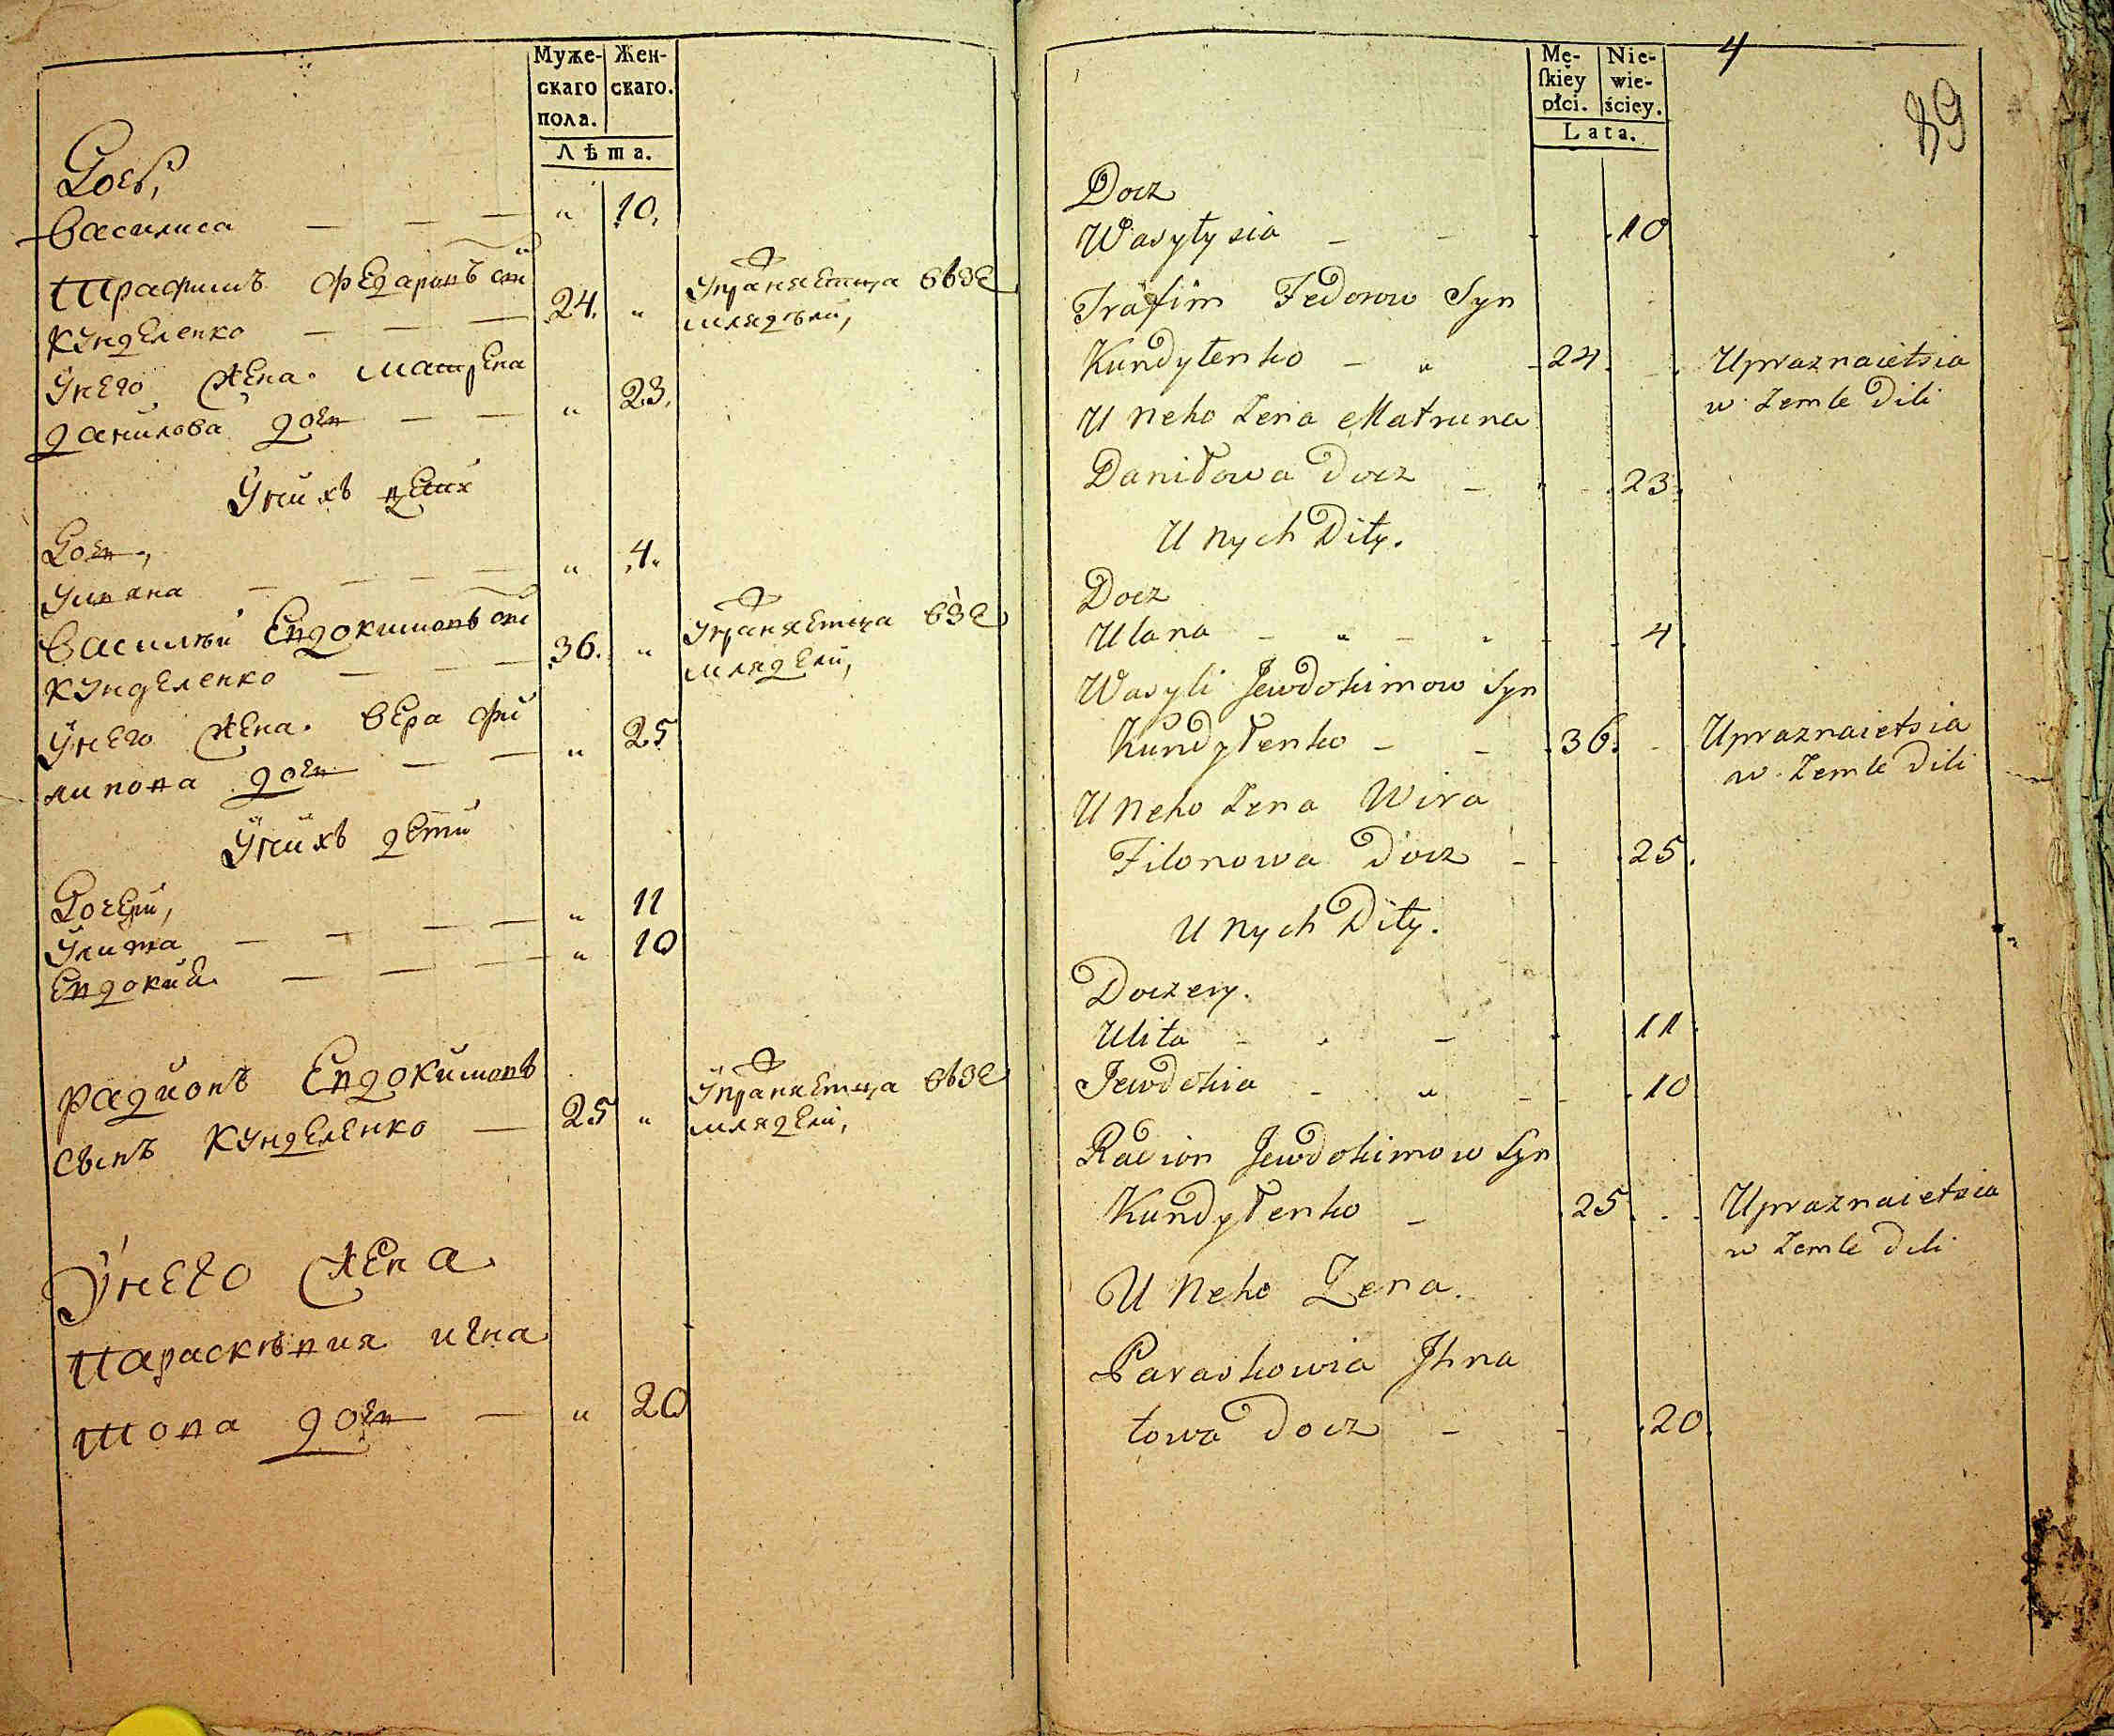 Муже-
скаго
пола.
Жен-
скаго.
Лѣта.
Доч,
Василиса — — — " 10.
Трафимъ Федаровъ сы
Кунделенко — — — 24. "
Упражняетца въ зе
млядѣли,
Унего жена. Матрена
данилова доч — — " 23.
Унихъ дети
Доч,
Уляна — — — — " 4.
Василѣй Евдокимовъ сы
Кунделенко — — — 36. "
Упражняетца въ зе
мляделй,
Унего жена. Вера фи
липова доч — — " 25
Унихъ дети
Дочери,
Улита — — — — " 11
Евдокия — — — " 10
Радионъ Евдокимовъ
сынъ Кунделенко — 25 "
Упражняетца въ зе
мляделй,
Унего жена
Параскѣвия игна
това доч — " 20
4
89
Mę-
ſkiéy
płci.
Nie-
wie-
ściey.
Lata.
Docz
Wasyłysia - - - 10
Trafim Fedorow Syn
Kundyłenko - " - 24.
Upraznaietsia
w Zemle dili
U Neho Zena Matruna
Daniłowa docz - 23.
U Nych Dity.
Docz
Ulana - " - 4.
Wasyli Jewdokimow Syn
Kundyłenko - - 36.
Upraznaietsia
w Zemle dili
U Neho Zena Wira
Filonowa docz - - 25.
U Nych Dity.
Doczery.
Ulita - - 11.
Jewdokia - " - 10
Radion Jewdokimow Syn
Kundyłenko - 25
Upraznaietsia
w Zemle dili
U Neho Zena.
Paraskowia Ihna
towa docz - - 20.